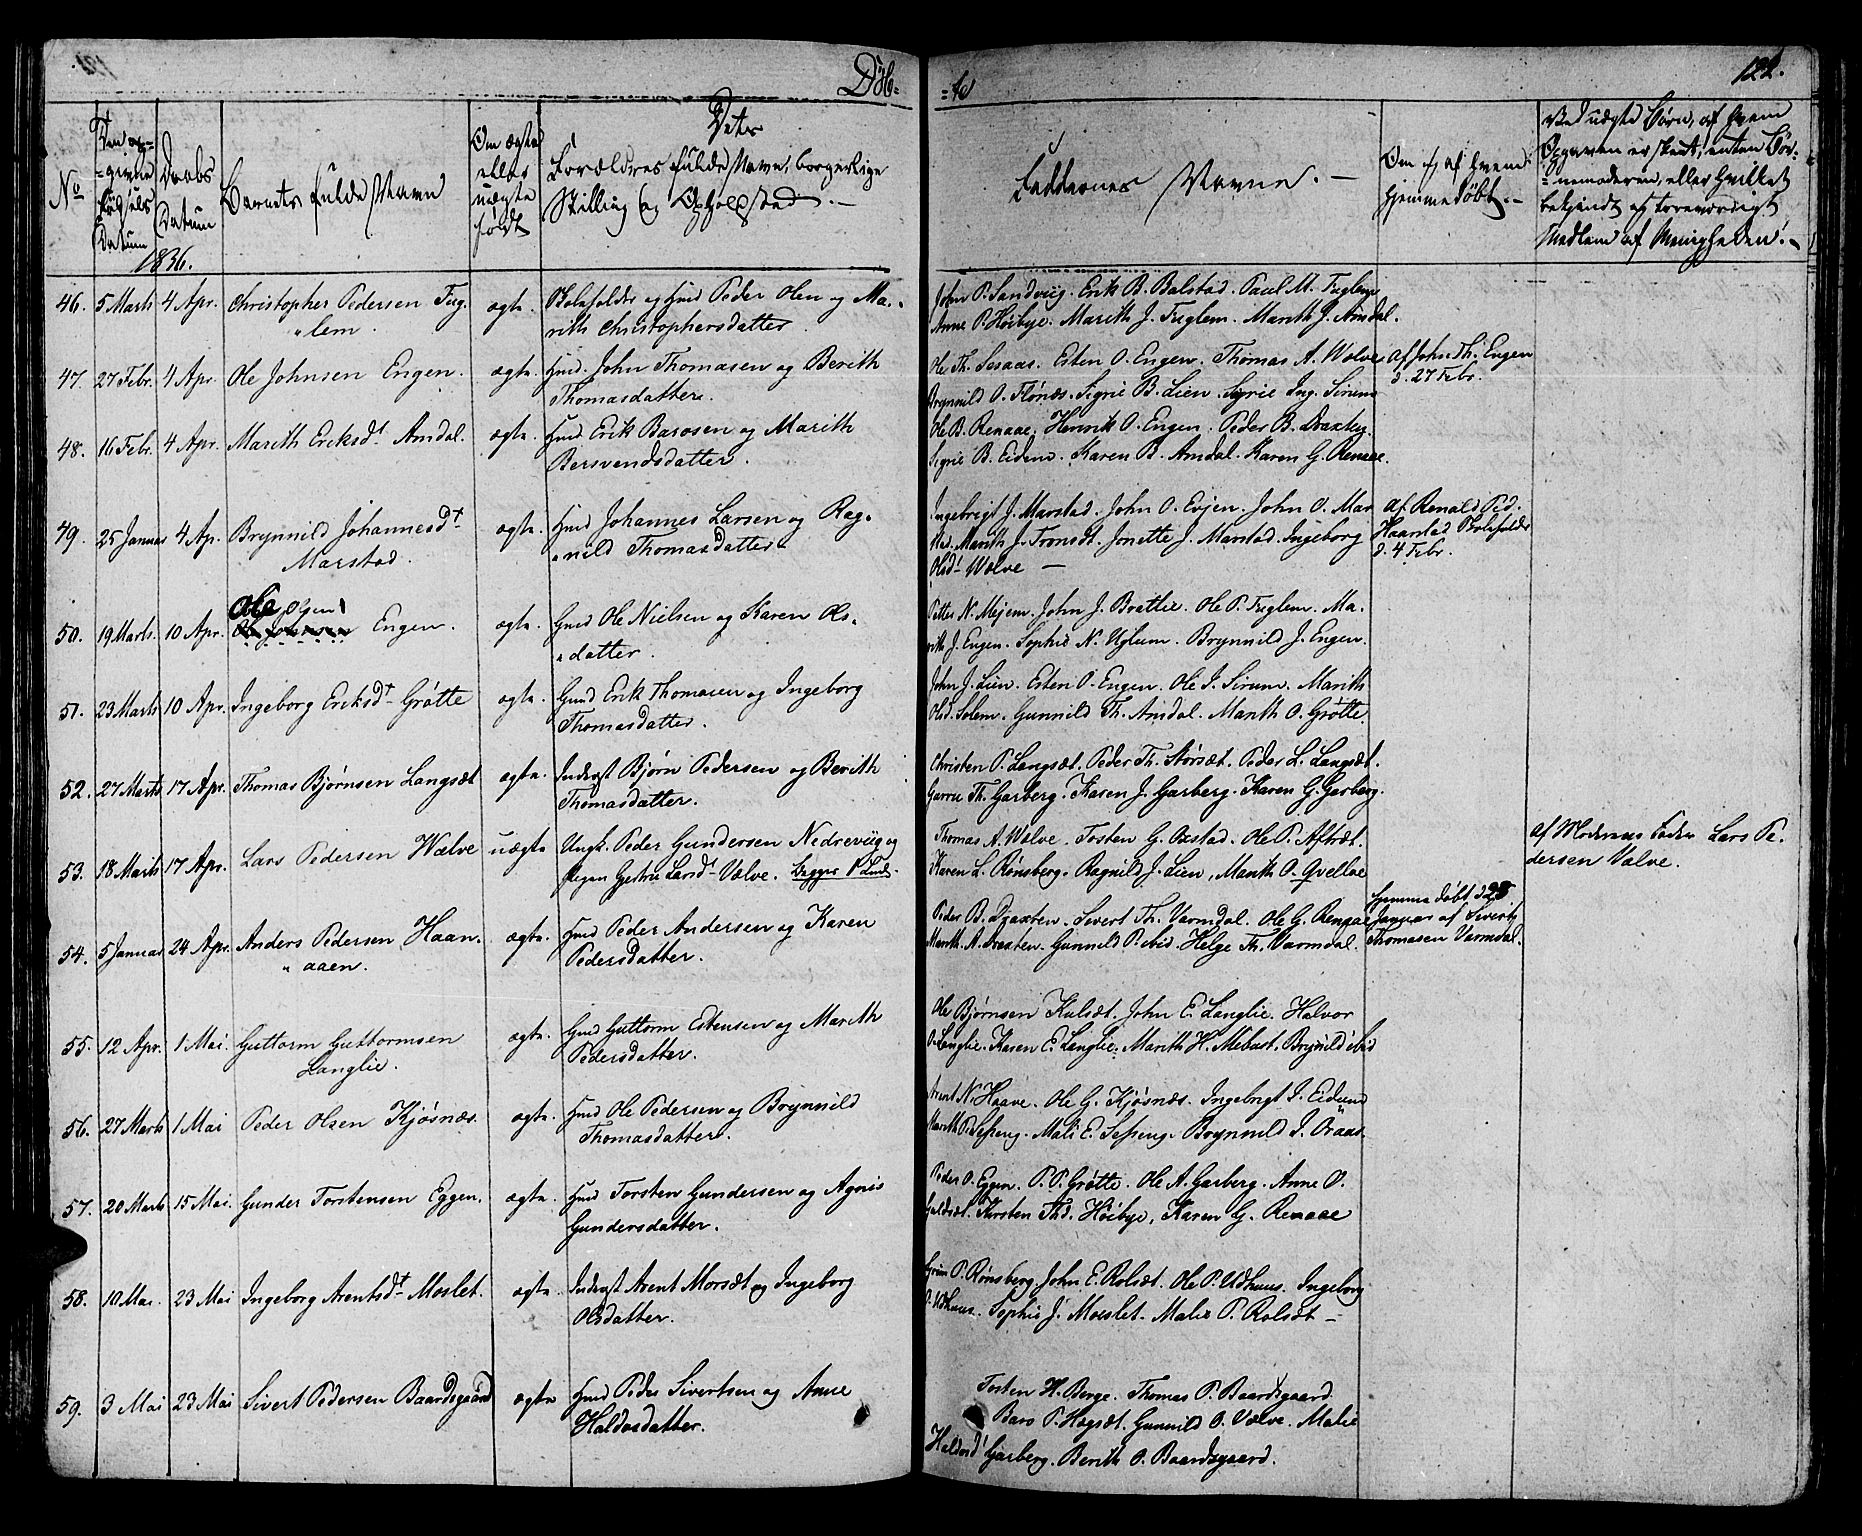 Døb=
=te
122.
No
Den op=
=givne
Fødsels
Datum
Daabs
Datum
1836.
Barnets fulde Navn
Om ægte
eller
uægte
født
Dets
Forældres fulde Navn, borgerlige
Stilling og Opholdsted. —
Faddernes Navne. —
Om og af hvem
hjemmedøbt. —
Ved uægte Børn, af hvem
Opgaven er skeet, enten Bør=
=nemoderen, eller hvilket
bekjendt og troværdigt
Medlem af Menigheden. —
46. 5 Marts 4 Apr. Christopher Pedersen Fug=
"lem.
ægte. Skoleholder og Gmd Peder Olsen og Ma=
rith Christophersdatter.
John P. Sandviig. Erik B. Balstad. Paul M. Fuglem
Anne P. Høibye. Marith J. Fuglem. Marith J. Amdal.
47. 27 Febr. 4 Apr. Ole Johnsen Engen. ægte. Gmd. John Thomasen og Berith
Thomasdatter.
Ole Th. Sesaas. Esten O. Engen. Thomas A. Wælve
Brynnild O. Flønæs. Sigrie B. Lien. Sigrie Ing. Sirum
af John Th. Engen
d. 27 Febr.
48. 16 Febr. 4 Apr. Marith Eriksdt Amdal. ægte. Gmd Erik Barosen og Marith
Bersvendsdatter.
Ole B. Renaae. Henrik O. Engen. Peder B. Draxten.
Sigrie B. Eidem. Karen B. Amdal. Karen G. Renaae.
49. 25 Januar 4 Ap. Brynnild Johannesdt
Marstad.
ægte. Gmd Johannes Larsen og Rag=
"nild Thomasdatter
Ingebrigt J. Marstad. John O. Evjen. John O. Mar
sted. Marith J. Tronsdt. Jonette J. Marstad. Ingeborg
Olsdt Wælve —
af Renald Ped.
Haarstad Skoleholder
d. 4 Febr.
50. 19 Marts. 10 Apr. Ole Olsen Engen. ægte. Gmd Ole Nielsen og Karen Ols=
"datter.
Petter N. Mejem. John J. Brattlie. Ole P. Fuglem. Ma=
rith J. Engen. Sophie N. Uglum. Brynnild J. Engen.
51. 23 Marts 10 Apr. Ingeborg Eriksdt Grøtte ægte. Gmd Erik Thomasen og Ingeborg
Thomasdatter.
John J. Lien. Esten O. Engen. Ole I. Sirum. Marith
Olsd. Solem. Gunnild Th. Amdal. Marith O. Grøtte
52. 27 Marts 17 Apr. Thomas Bjørnsen Langsæt ægte. Inderst Bjørn Pedersen og Berith
Thomasdatter.
Christen P. Langsæt. Peder Th. Storsæt. Peder L. Langsæt.
Guru Th. Garberg. Karen J. Garberg. Karen G. Garberg.
53. 18 Marts 17 Apr. Lars Pedersen Wælve uægte Ungk. Peder Gundersen Nedreviig og
Pigen Gjertru Larsdt Vælve.
Thomas A. Wælve. Tosten G. Oxstad. Ole P. Aftræt.
Karen L. Rønsberg. Ragnild J. Lien. Marith O. Qvelloe
af Moderens Fader Lars Pe=
dersen Vælve.
54. 5 Januar 24 Apr. Anders Pedersen Haan=
"aaen.
ægte. Gmd Peder Andersen og Karen
Pedersdatter.
Peder B. Draxten. Sivert Th. Varmdal. Ole G. Rengae
Marith A. Draxten. Gunnild P. ibid. Helge Th. Varmdal.
Hjemmedøbt d 28
Januar af Sivert
Thomasen Varmdal.
55. 12 Apr. 1 Mai. Guttorm Guttormsen
Langlie.
ægte. Gmd Guttorm Estensen og Marith
Pedersdatter.
Ole Bjørnsen Kulsæt. John E. Langlie. Halvor
O. Langlie. Karen E. Langlie. Marith H. Mebust. Brynild ibid
56. 27 Marts 1 Mai Peder Olsen Kjøsnæs. ægte. Gmd Ole Pedersen og Brynnild
Thomasdatter.
Arent N. Haave. Ole G. Kjøsnæs. Ingebrigt I. Eidem
Marith P. Sesseng. Mali E. Sesseng. Brynnild I. Oraas.
57. 20 Marts 15 Mai. Gunder Torstensen Eggen. ægte. Gmd Torsten Gundersen og Agnis
Gundersdatter.
Peder O. Eggen. P. P. Grøtte. Ole A. Garberg. Anne O.
Kirsten Thd. Høibye. Karen G. Renaae
58. 10 Mai. 23 Mai Ingeborg Arentsdt Moslet. ægte. Inderst Arent Morsæt og Ingeborg
Olsdatter.
P. Rønsberg. John E. Rolsæt. Ole P. Udhuus. Ingeborg
O. Udhuus. Sophie J. Moeslet. Malie P. Rolsæt —
59. 3 Mai 23 Mai Sivert Pedersen Baardsgaard ægte Gmd Peder Sivertsen og Anne
Haldosdatter.
Tosten H. Berge. Thomas P. Baardsgaard
Baro P. Hogsæt. Gunnild O. Vælve. Malie
Haldosdt Garberg. Berith O. Baardsgaard.